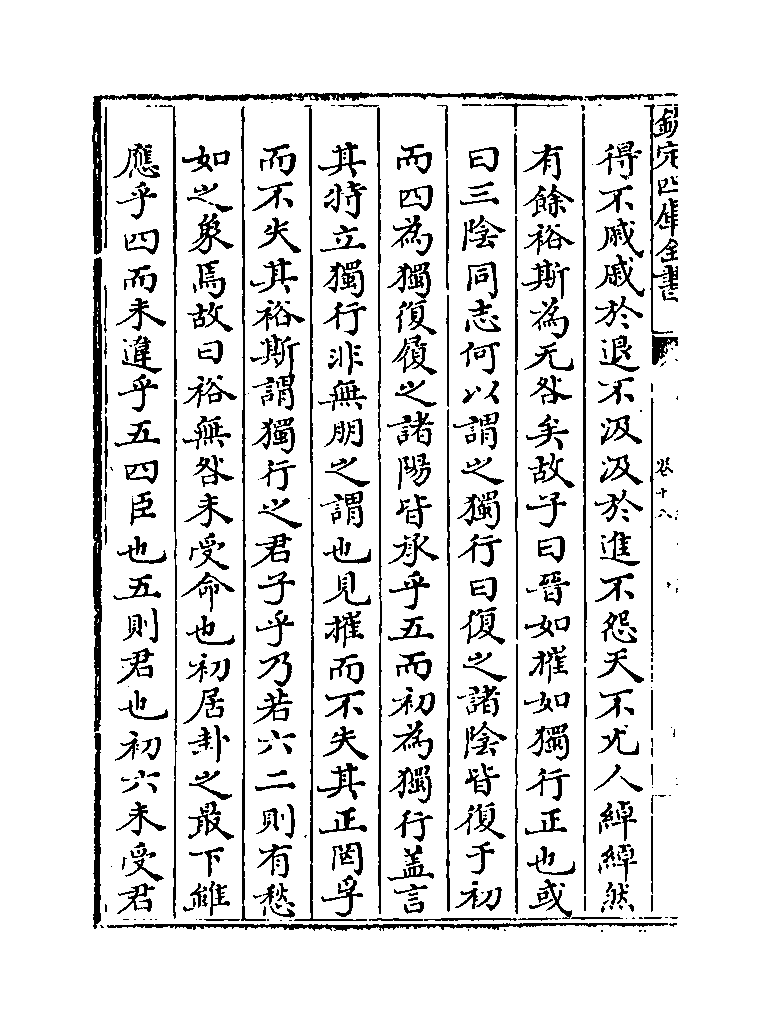 欽定四庫全書
卷十八
得不戚戚於退不汲汲於進不怨天不尤人綽綽然
有餘裕斯為无咎矣故子曰晉如摧如獨行正也或
曰三陰同志何以謂之獨行曰復之諸陰皆復于初
而四為獨復履之諸陽皆承乎五而初為獨行蓋言
其特立獨行非無朋之謂也見摧而不失其正罔孚
而不失其裕斯謂獨行之君子乎乃若六二則有愁
如之象焉故曰裕無咎未受命也初居卦之最下雖
應乎四而未違乎五四臣也五則君也初六未受君